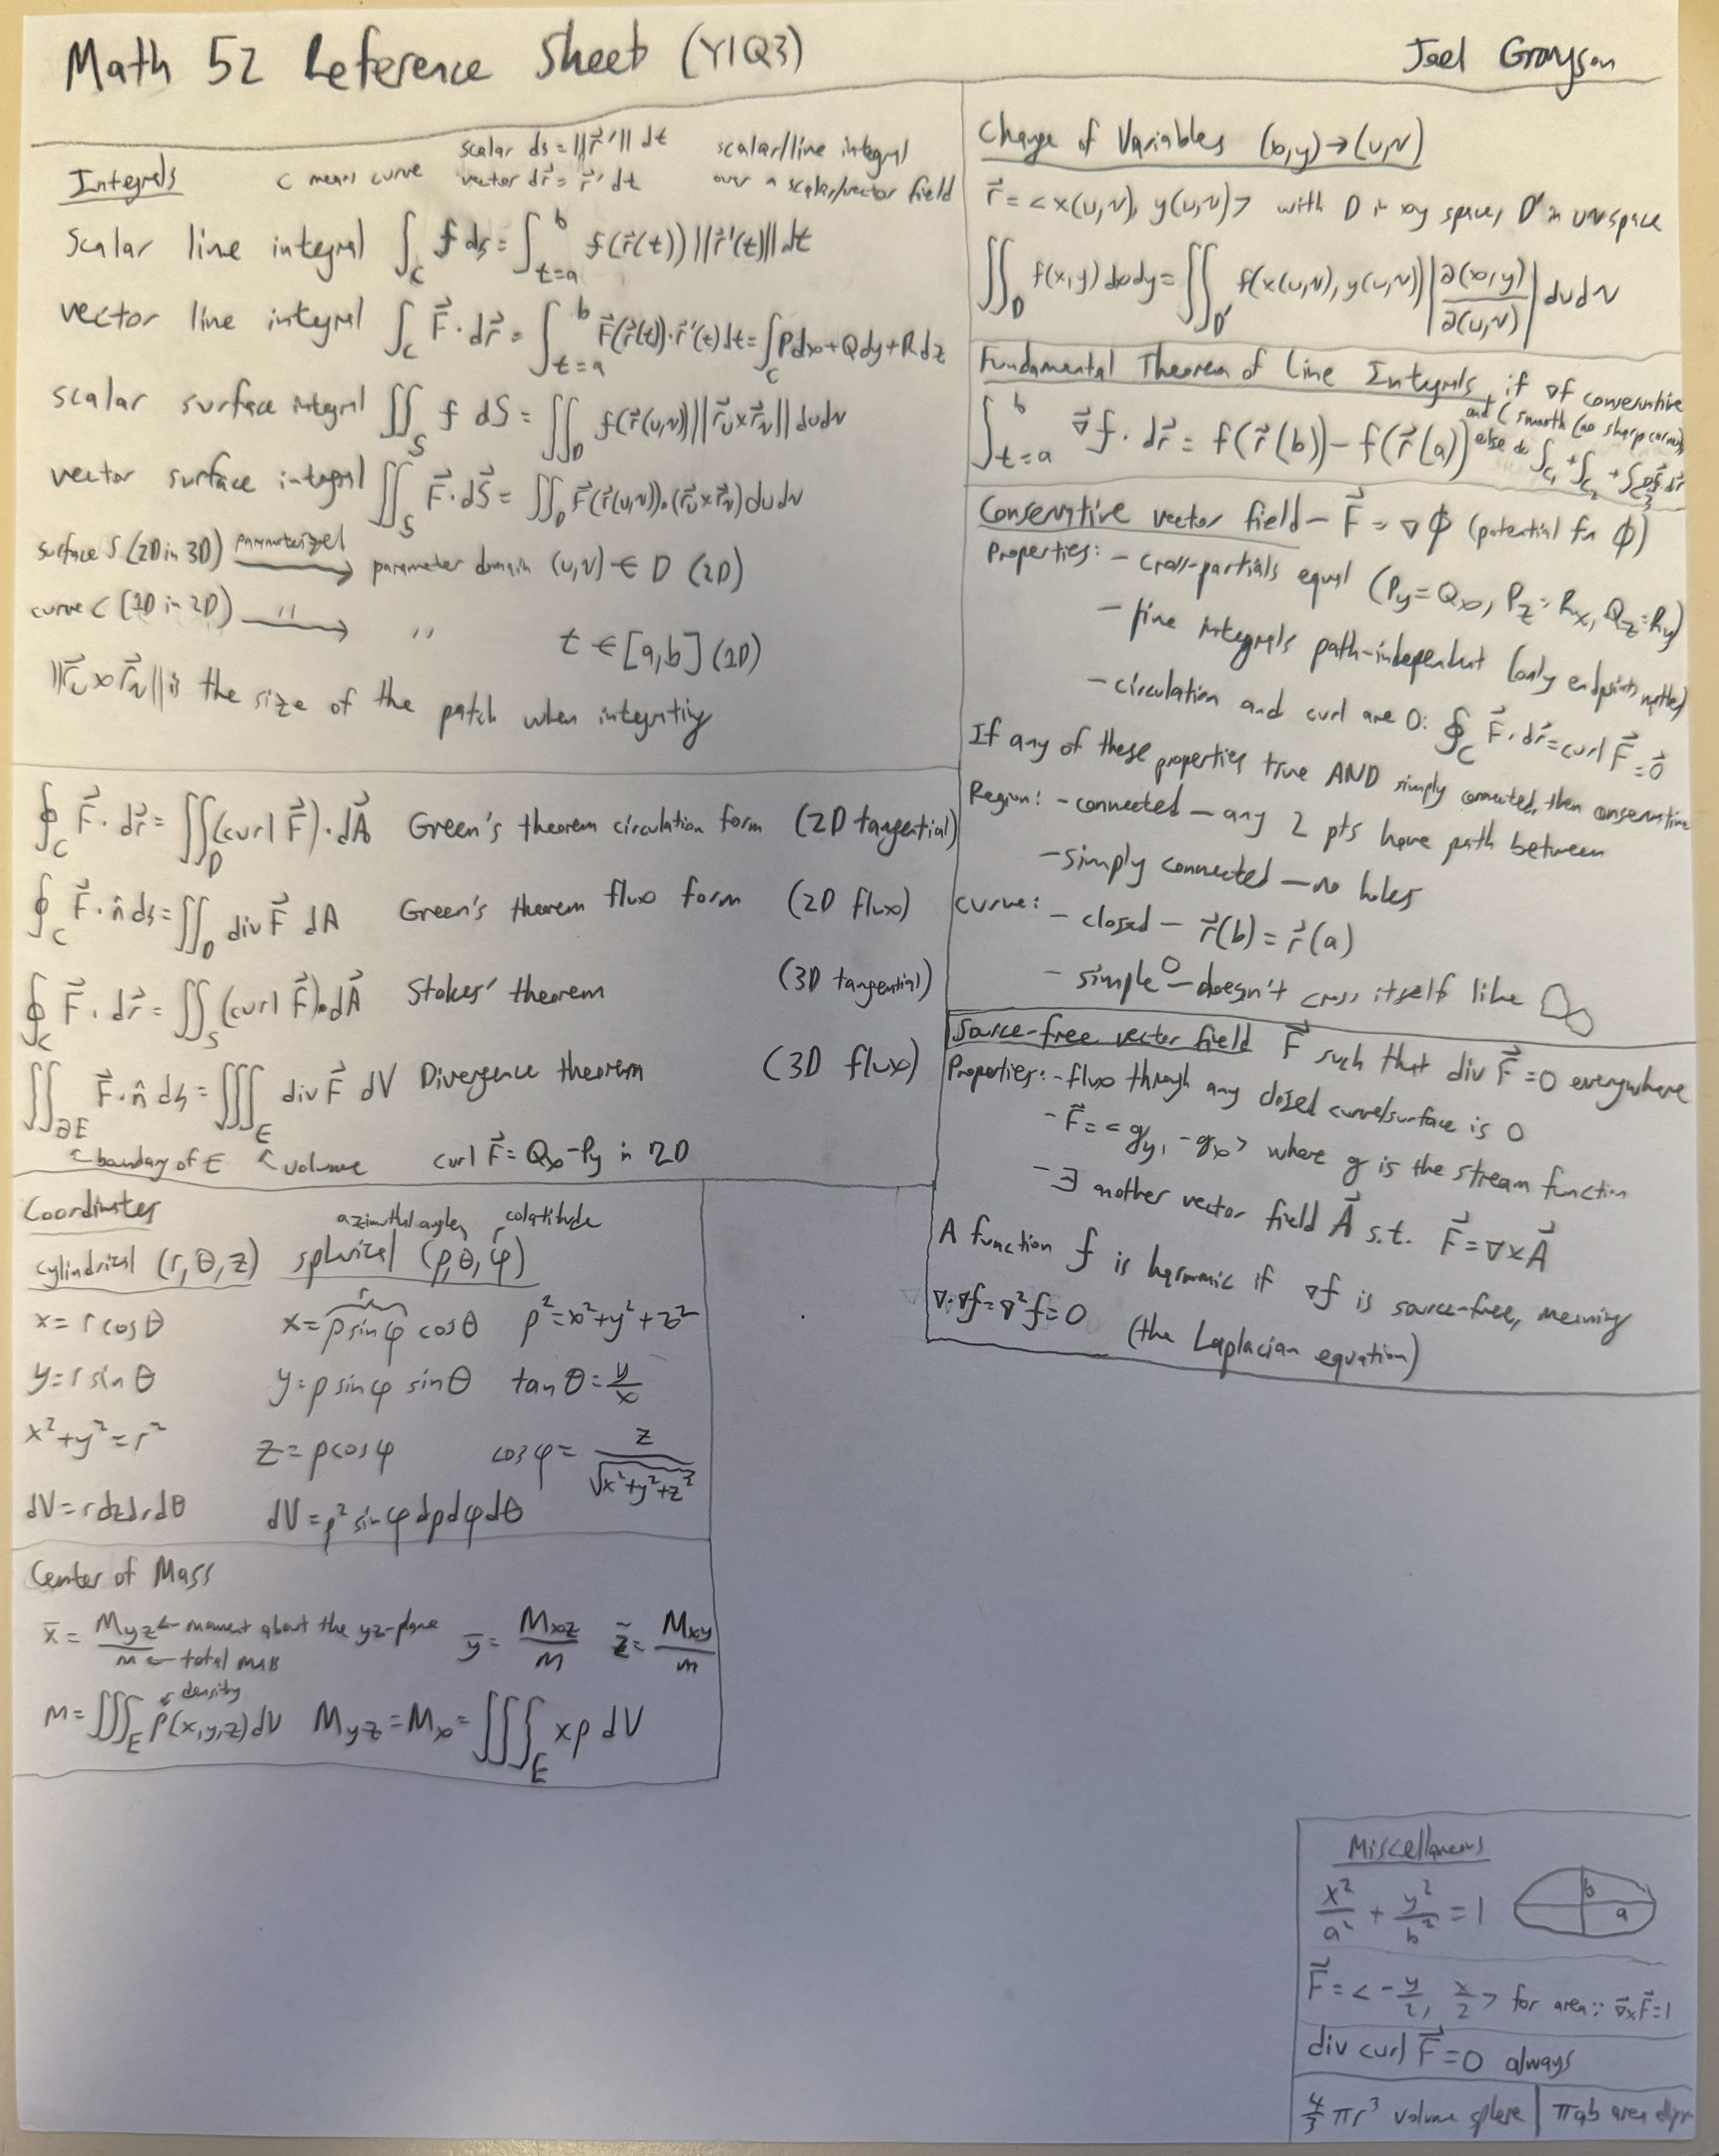 Math 52 Reference Sheet (Y1Q3)
Joel Grayson
Integrals
C means curve
scalar ds = ||r⃗'|| dt
vector dr⃗ = r⃗' dt
scalar/line integral
over a scalar/vector field
scalar line integral ∫_C f ds = ∫_{t=a}^b f(r⃗(t)) ||r⃗'(t)|| dt
vector line integral ∫_C F⃗ · dr⃗ = ∫_{t=a}^b F⃗(r⃗(t)) · r⃗'(t) dt = ∫_C Pdx + Qdy + Rdz
scalar surface integral ∬_S f dS = ∬_D f(r⃗(u,v)) ||r⃗_u × r⃗_v|| du dv
vector surface integral ∬_S F⃗ · dS⃗ = ∬_D F⃗(r⃗(u,v)) · (r⃗_u × r⃗_v) du dv
surface S (2D in 3D) parameterized → parameter domain (u,v) ∈ D (2D)
curve C (1D in 2D) " → " t ∈ [a,b] (1D)
||r⃗_u × r⃗_v|| is the size of the patch when integrating
∮_C F⃗ · dr⃗ = ∬_D (curl F⃗) · dA⃗ Green's theorem circulation form (2D tangential)
∮_C F⃗ · n̂ ds = ∬_D div F⃗ dA Green's theorem flux form (2D flux)
∮_C F⃗ · dr⃗ = ∬_S (curl F⃗) · dA⃗ Stokes' theorem (3D tangential)
∬_{∂E} F⃗ · n̂ ds = ∭_E div F⃗ dV Divergence theorem (3D flux)
↖ boundary of E ↖ volume curl F⃗ = Q_x - P_y in 2D
Coordinates
azimuthal angle colatitude
cylindrical (r, θ, z) spherical (ρ, θ, φ)
r
x = r cos θ x = ρ sin φ cos θ ρ² = x² + y² + z²
y = r sin θ y = ρ sin φ sin θ tan θ = y/x
x² + y² = r² z = ρ cos φ cos φ = z/√(x² + y² + z²)
dV = r dz dr dθ dV = ρ² sin φ dρ dφ dθ
Center of Mass
x̄ = M_yz/m ← moment about the yz-plane ȳ = M_xz/m z̄ = M_xy/m
← total mass
density
m = ∭_E ρ(x,y,z) dV M_yz = M_x = ∭_E xρ dV
Change of Variables (x,y) → (u,v)
r⃗ = <x(u,v), y(u,v)> with D in xy space, D' in uv space
∬_D f(x,y) dx dy = ∬_D' f(x(u,v), y(u,v)) |∂(x,y)/∂(u,v)| du dv
Fundamental Theorem of Line Integrals, if ∇f conservative
and C smooth (no sharp corners)
∫_{t=a}^b ∇⃗f · dr⃗ = f(r⃗(b)) - f(r⃗(a)) else do ∫_{C₁} + ∫_{C₂} + ∫_{C₃} ∇f · dr⃗
Conservative vector field - F⃗ = ∇Φ (potential fn Φ)
Properties: - cross-partials equal (P_y = Q_x, P_z = R_x, Q_z = R_y)
- line integrals path-independent (only endpoints matter)
- circulation and curl are 0: ∮_C F⃗ · dr⃗ = curl F⃗ = 0⃗
If any of these properties true AND simply connected, then conservative
Region: - connected - any 2 pts have path between
- simply connected - no holes
curve: - closed - r⃗(b) = r⃗(a)
- simple - doesn't cross itself like
Source-free vector field F⃗ such that div F⃗ = 0 everywhere
Properties: - flux through any closed curve/surface is 0
- F⃗ = <g_y, -g_x> where g is the stream function
- ∃ another vector field A⃗ s.t. F⃗ = ∇×A⃗
A function f is harmonic if ∇f is source-free, meaning
∇·∇f = ∇²f = 0 (the Laplacian equation)
Miscellaneous
x²/a² + y²/b² = 1
b
a
F⃗ = <-y/2, x/2> for area ∵ ∇⃗×F⃗ = 1
div curl F⃗ = 0 always
4/3 πr³ volume sphere | πab area